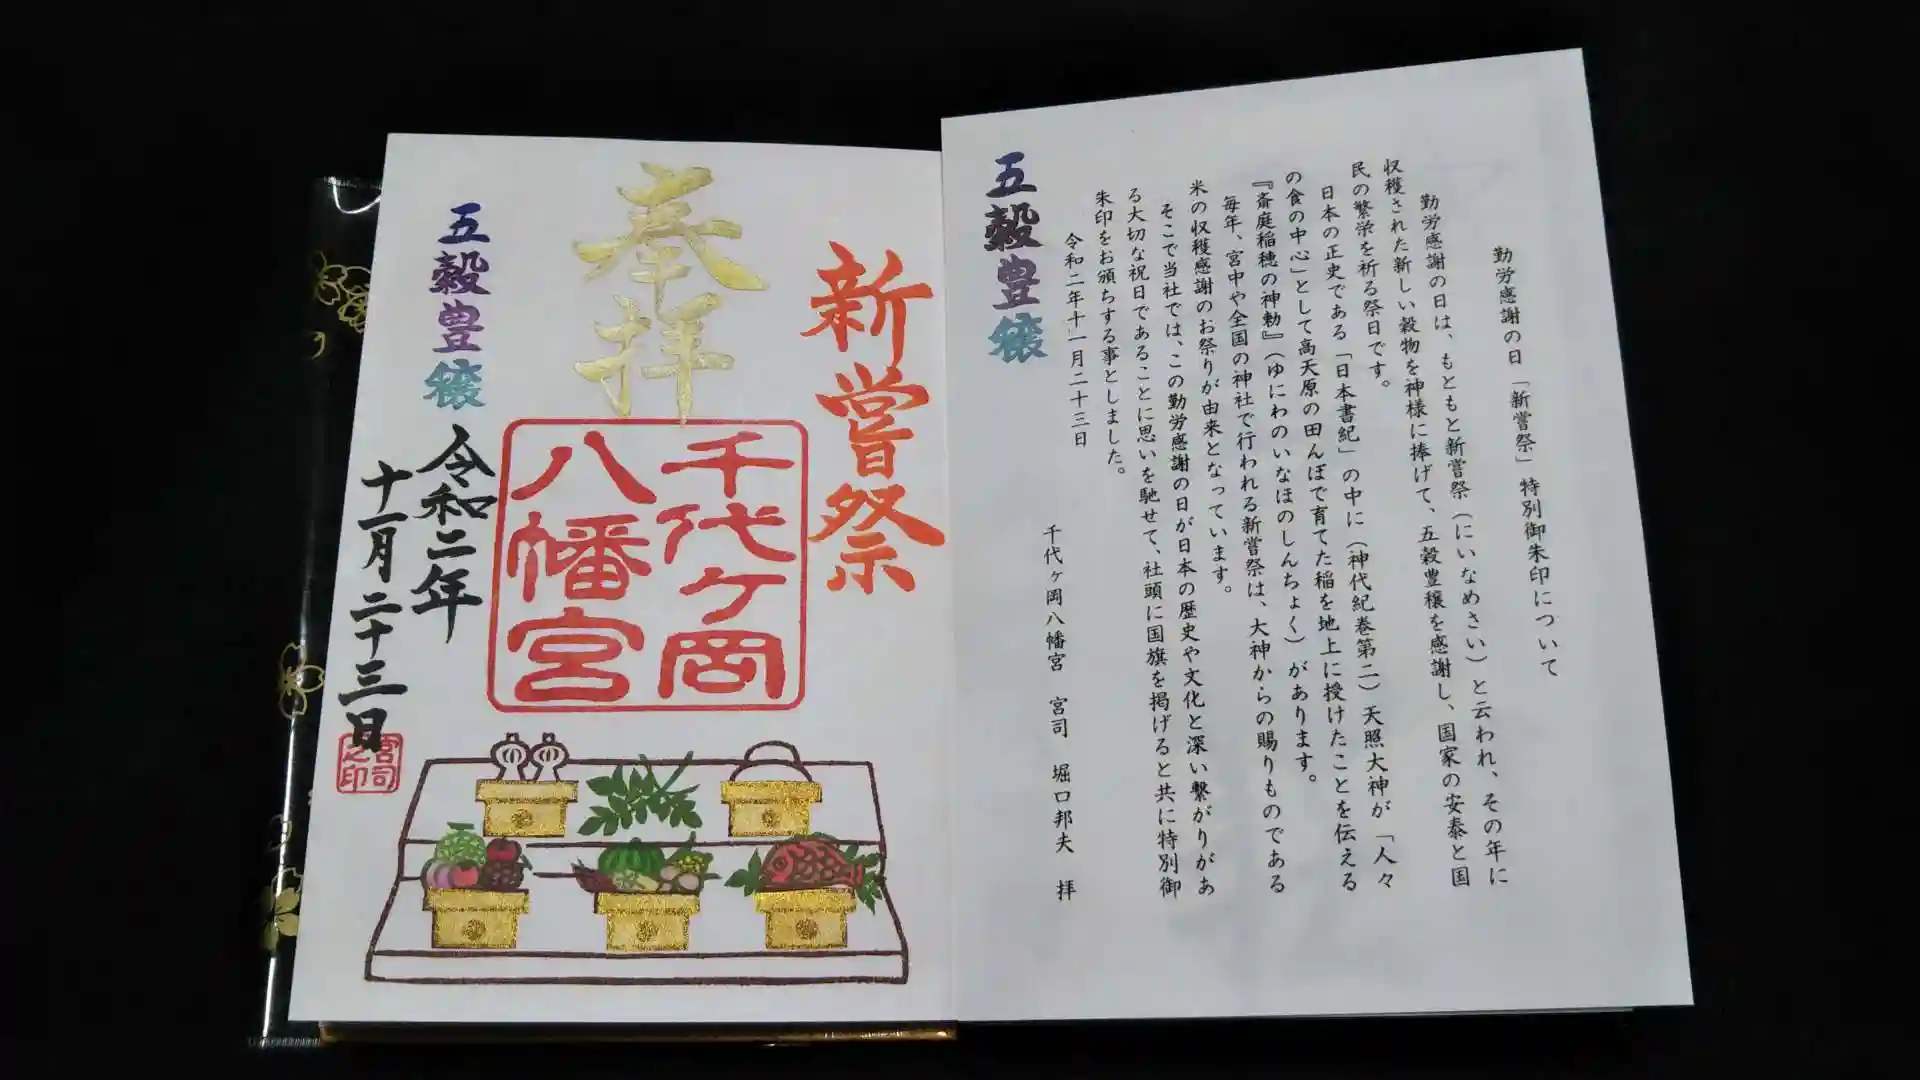 勤労感謝の日「新嘗祭」特別御朱印について
勤労感謝の日は、もともと新嘗祭（にいなめさい）と云われ、その年に
収穫された新しい穀物を神様に捧げて、五穀豊穣を感謝し、国家の安泰と国
民の繁栄を祈る祭日です。
日本の正史である「日本書紀」の中に（神代紀巻第二）天照大神が「人々
の食の中心」として高天原の田んぼで育てた稲を地上に授けたことを伝える
『斎庭稲穂の神勅』（ゆにわのいなほのしんちょく）があります。
毎年、宮中や全国の神社で行われる新嘗祭は、大神からの賜りものである
米の収穫感謝のお祭りが由来となっています。
そこで当社では、この勤労感謝の日が日本の歴史や文化と深い繋がりがあ
る大切な祝日であることに思いを馳せて、社頭に国旗を掲げると共に特別御
朱印をお頒ちする事としました。
令和二年十一月二十三日
千代ヶ岡八幡宮 宮司 堀口邦夫 拝
五穀豊穣
新嘗祭
奉拝
千代ヶ岡
八幡宮
五穀豊穣
令和二年
十一月二十三日
宮司
之印